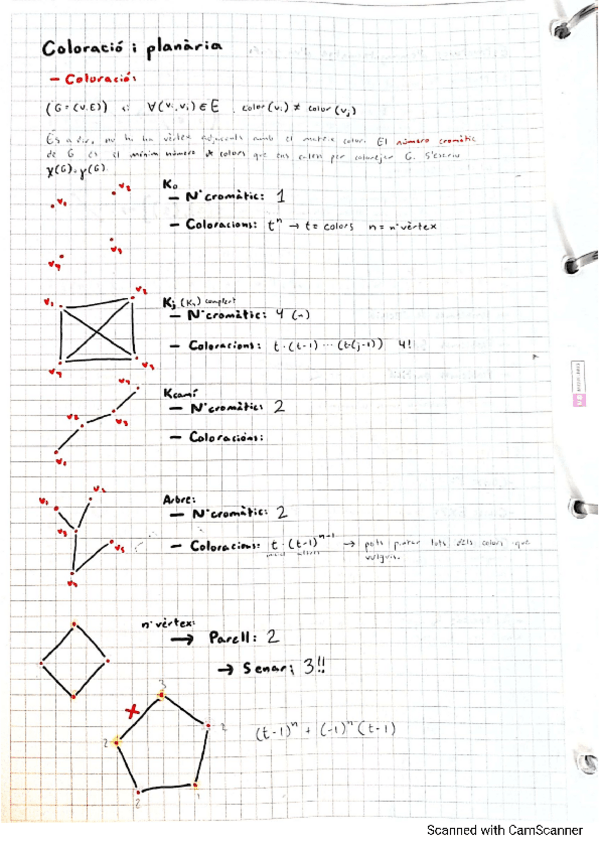 Coloració i planària
– Coloració:
(G=(V,E)) si ∀(vi,vj) ∈ E color(vi) ≠ color(vj)
És a dir, no hi ha vèrtex adjacents amb el mateix color. El número cromàtic
de G és el mínim número de colors que ens calen per colorejar G. S'escriu
χ(G), γ(G).
v₁
v₂
v₃
v₄
K₀
– N°cromàtic: 1
– Coloracions: tⁿ → t = colors n = n°vèrtex
v₁
v₂
v₃
v₄
Kj (K₄) complert
– N°cromàtic: 4
– Coloracions: t·(t-1) ··· (t-(j-1)) 4!
v₁
v₂
v₃
v₄
Kcamí
– N°cromàtic: 2
– Coloracions:
Arbre:
– N°cromàtic: 2
– Coloracions: t·(t-1)ⁿ⁻¹ → pots pintar tots dels colors que
vulguis.
v₅
n°vèrtex:
→ Parell: 2
→ Senar; 3!!
3
2
2
2
1
(t-1)ⁿ + (-1)ⁿ (t-1)
Scanned with CamScanner